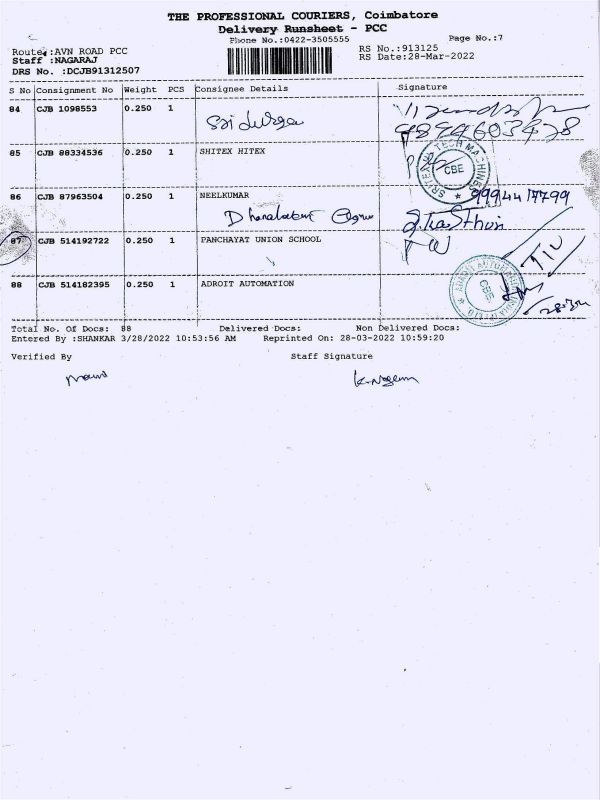 THE PROFESSIONAL COURIERS, Coimbatore
Delivery Runsheet - PCC
Phone No.:0422-3505555
Page No.:7
Route:AVN ROAD PCC
Staff :NAGARAJ
DRS No. :DCJB91312507
RS No.:913125
RS Date:28-Mar-2022
S No Consignment No Weight PCS Consignee Details Signature
84 CJB 1098553 0.250 1
Sri durga
9894603478
85 CJB 88334536 0.250 1 SHITEX HITEX
TECH MACHINES
CBE
86 CJB 87963504 0.250 1 NEELKUMAR
9994417799
87 CJB 514192722 0.250 1 PANCHAYAT UNION SCHOOL
88 CJB 514182395 0.250 1 ADROIT AUTOMATION
CBE
Total No. Of Docs: 88 Delivered Docs: Non Delivered Docs:
Entered By :SHANKAR 3/28/2022 10:53:56 AM Reprinted On: 28-03-2022 10:59:20
Verified By Staff Signature